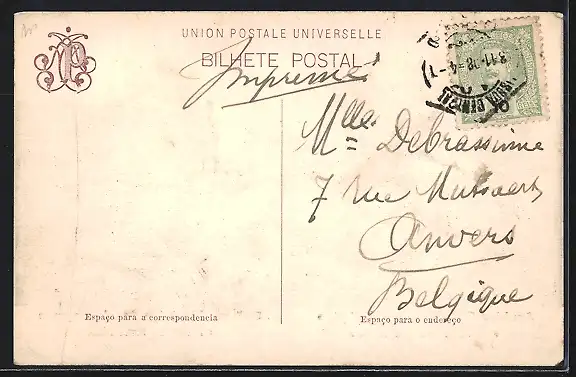 UNION POSTALE UNIVERSELLE
BILHETE POSTAL
Imprimé
Mlle Debrassinne
7 rue
Anvers
Belgique
Espaço para a correspondencia
Espaço para o endereço